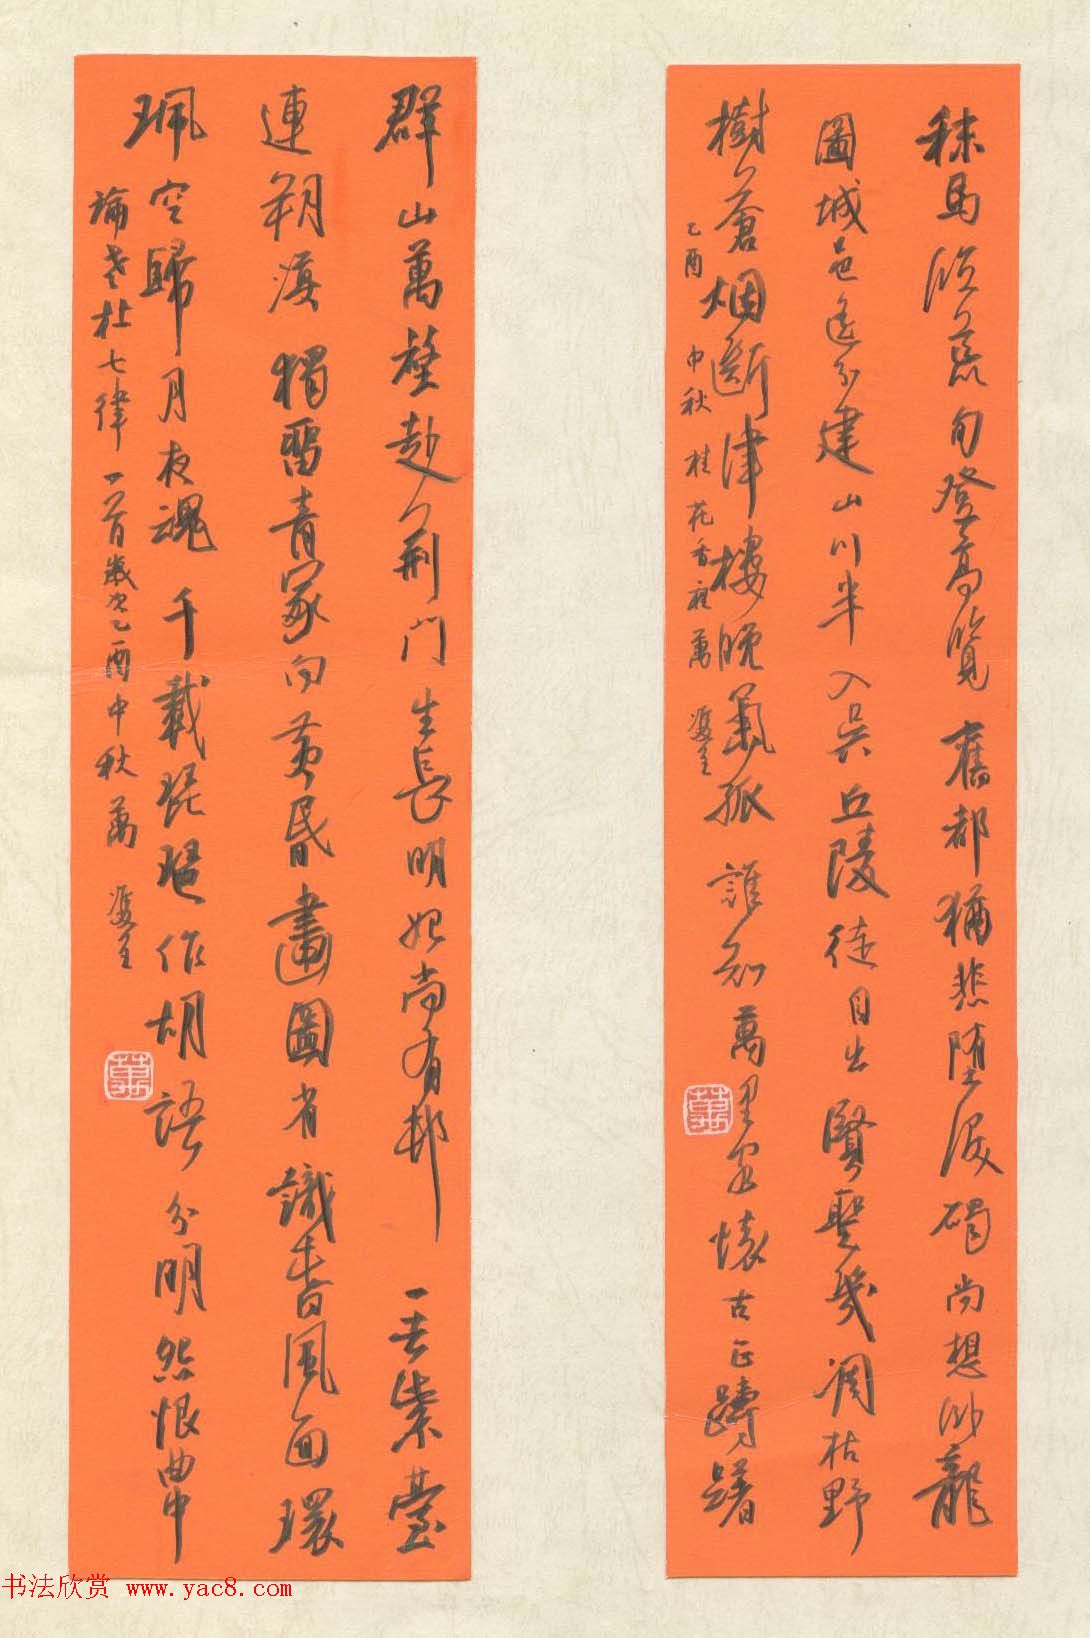 秣馬臨荒甸登高覽舊都猶悲墮淚碣尚想臥龍
圖城邑遙分建山川半入吳丘陵徒自出賢聖幾凋枯野
樹蒼烟斷津樓晚氣孤誰知萬里客懷古正躊躇
乙酉中秋桂花香夜萬
萬
群山萬壑赴荊門生長明妃尚有邨一去紫臺
連朔漠獨留青冢向黃昏畫圖省識春風面環
珮空歸月夜魂千載琵琶作胡語分明怨恨曲中
論老杜七律一首歲次乙酉中秋萬
萬
书法欣赏 www.yac8.com